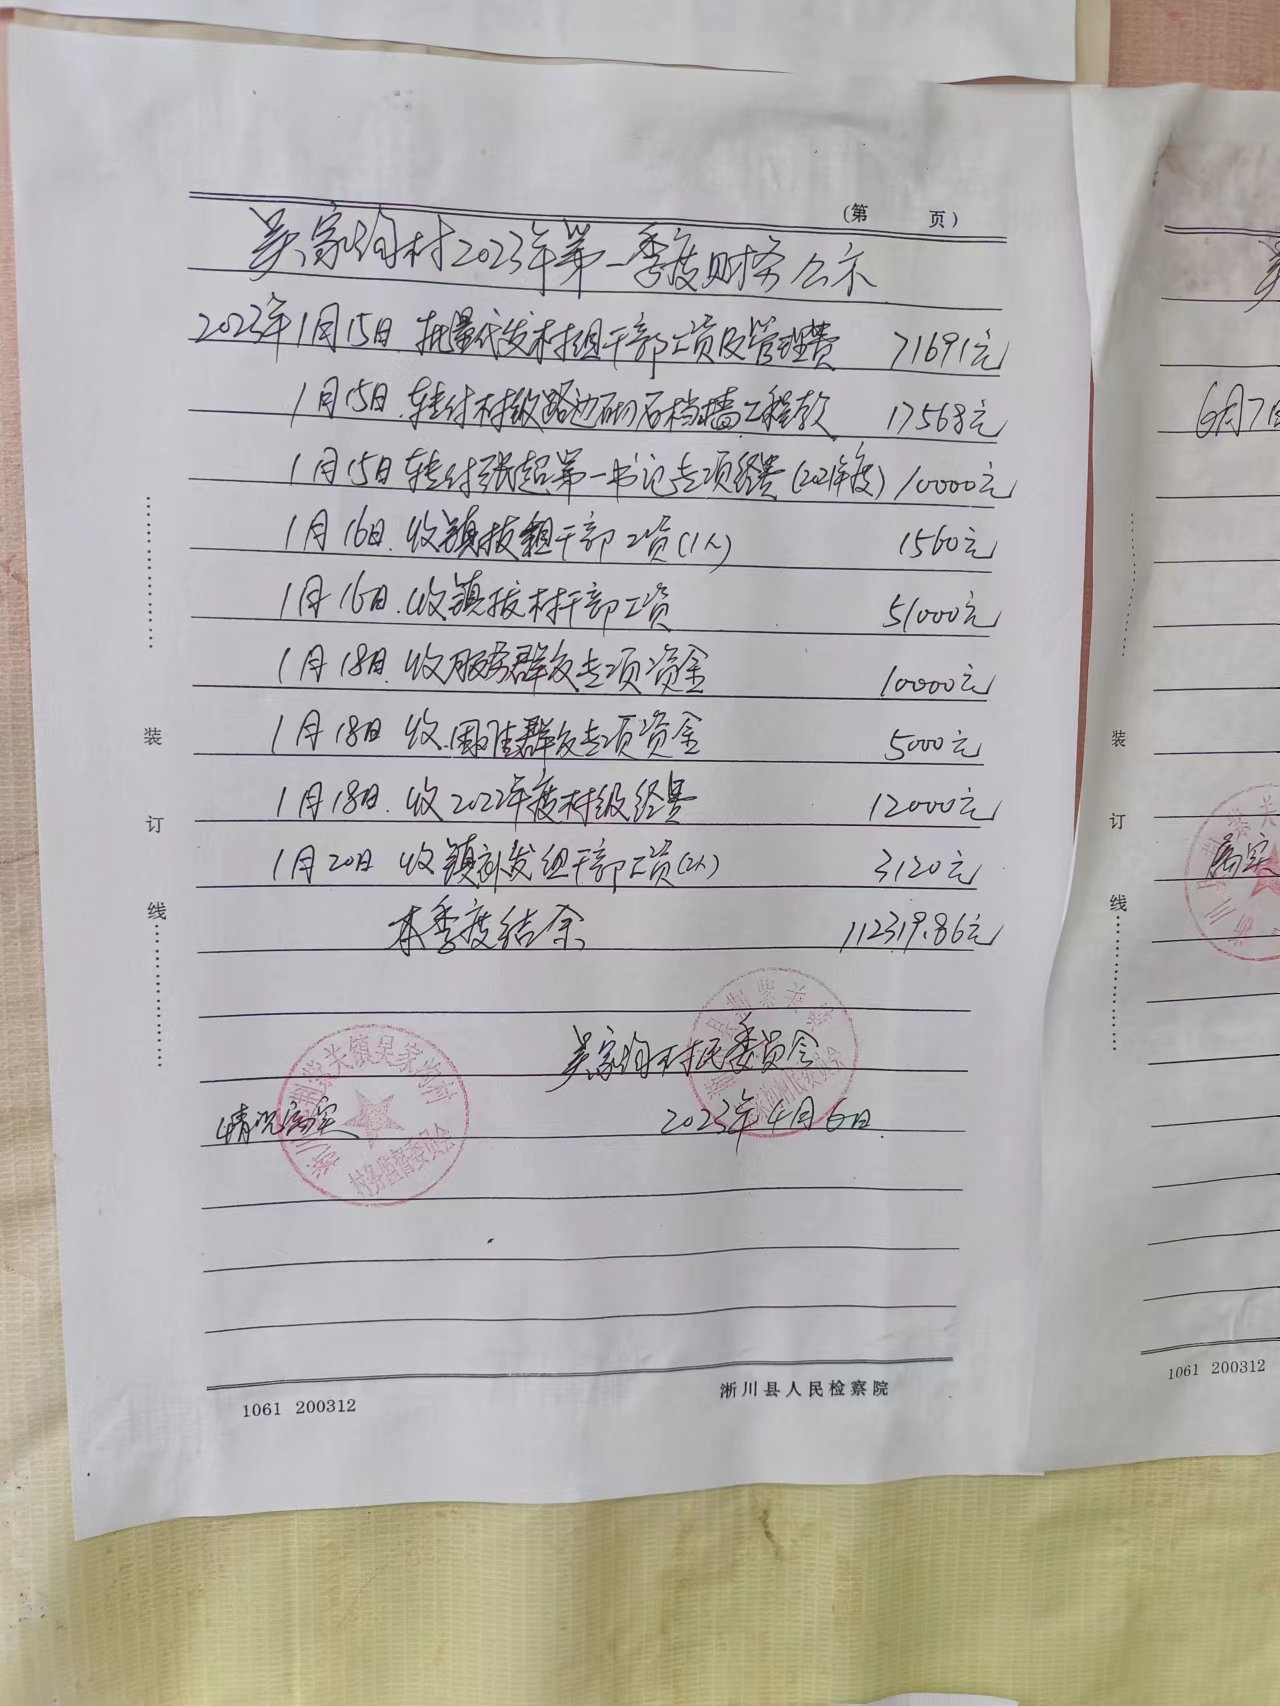 (第 页)
吴家沟村2023年第一季度财务公示
2023年1月15日.批量代发村组干部工资及管理费 71691元
1月15日.转付村级路边砌石档墙工程款 17568元
1月15日 转付张起第一书记专项经费(2021年度) 10000元
1月16日.收镇拨组干部工资(1人) 1560元
1月16日.收镇拨村干部工资 51000元
1月18日.收服务群众专项资金 10000元
1月18日 收困难群众专项资金 5000元
1月18日.收2022年度村级经费 12000元
1月20日 收镇补发组干部工资(2人) 3120元
本季度结余 112319.86元
吴家沟村村民委员会
2023年4月6日.
情况属实
荆紫关镇吴家沟村
村务监督委员会
装
订
线
1061 200312
淅川县人民检察院
6月7日
装
订
线
属实
1061 200312